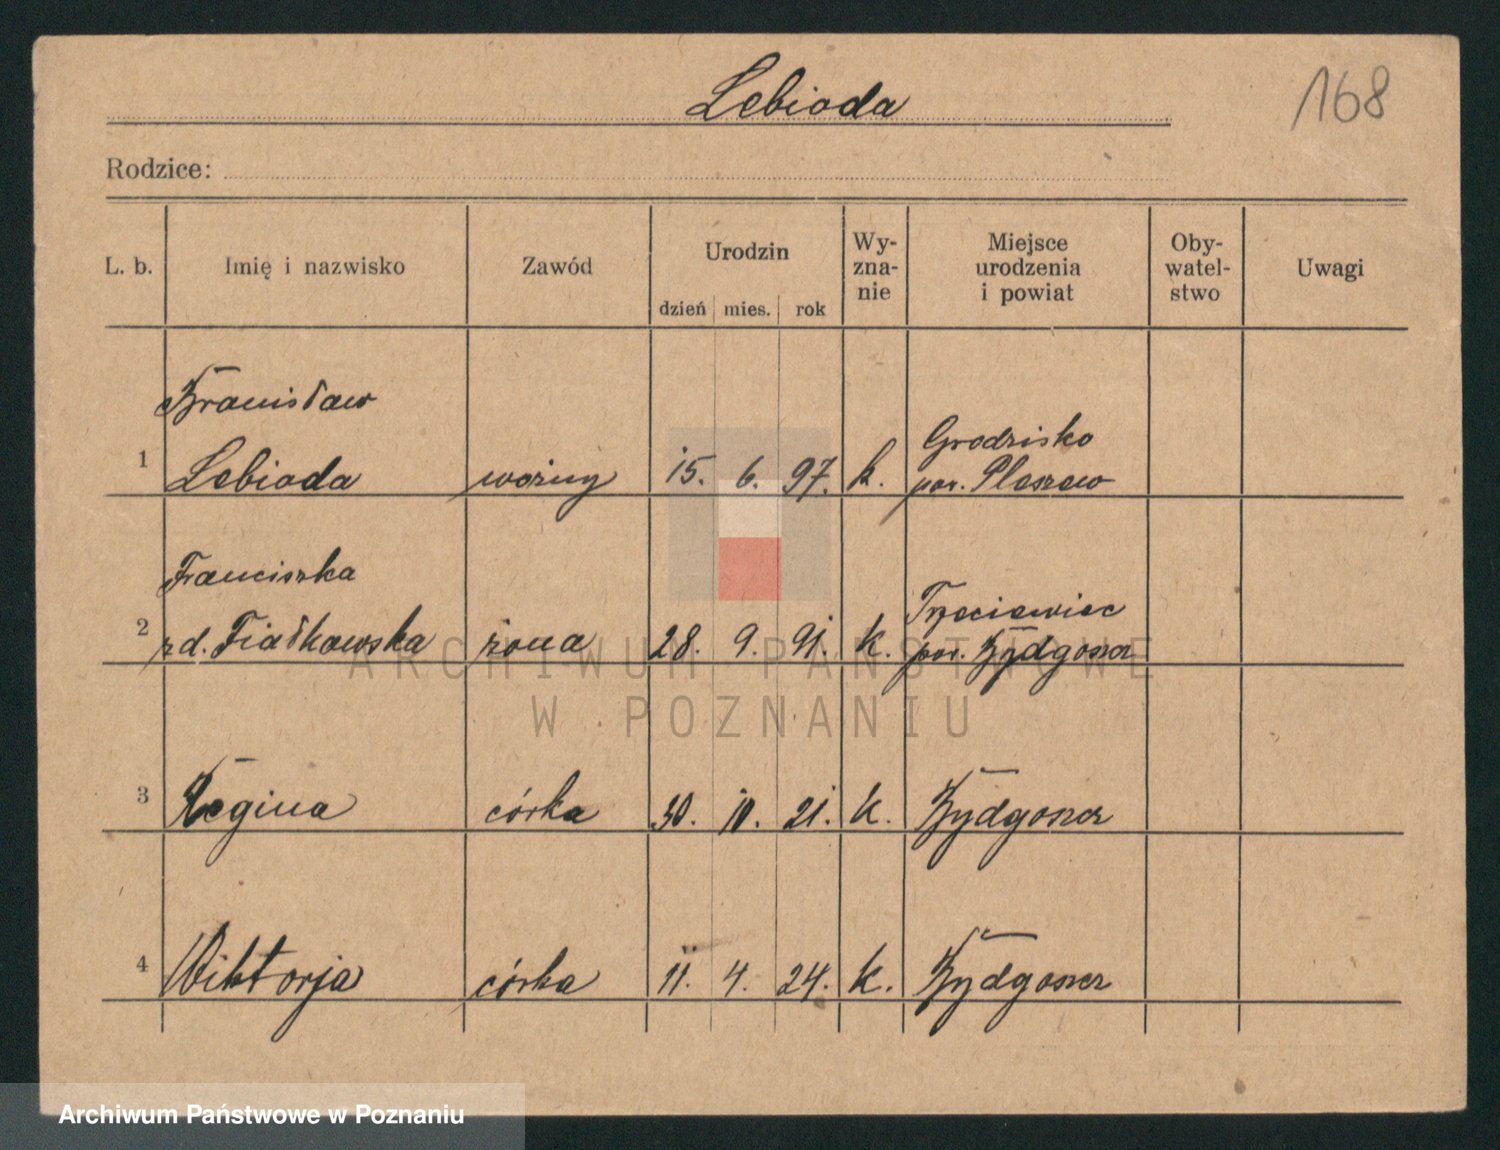 Lebioda
168
Rodzice:
L. b. Imię i nazwisko Zawód Urodzin dzień mies. rok Wy-zna-nie Miejsce urodzenia i powiat Oby-watel-stwo Uwagi
Bronisław
1 Lebioda woźny 15. 6. 97. k. Grodzisko
pow. Pleszew
Franciszka
2 zd. Fiałkowska żona 28. 9. 91. k. Trzeciewiec
pow. Bydgoszcz
3 Regina córka 30. 10. 21. k. Bydgoszcz
4 Wiktorja córka 11. 4. 24. k. Bydgoszcz
ARCHIWUM PAŃSTWOWE
W POZNANIU
Archiwum Państwowe w Poznaniu